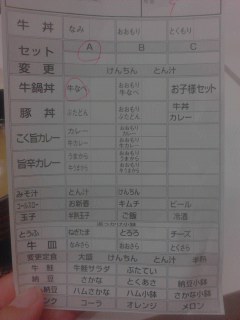 牛丼 なみ おおもり とくもり
セット A B C
変更 けんちん とん汁
牛鍋丼 牛なべ おおもり 牛なべ お子様セット
豚丼 ぶたどん おおもり ぶたどん 牛丼 カレー
こく旨カレー カレー
旨辛カレー うまから
みそ汁 とん汁 けんちん
お新香 キムチ ビール
玉子 半熟玉子 ご飯 冷酒
とうふ ねぎたま とろろ チーズ
牛皿 なみさら おおさら とくさら
変更定食 大盛 けんちん とん汁
牛鮭 牛鮭サラダ ぶたてい
納豆 さかな とくあさ 納豆小鉢
納豆 ハムさかな ハム小鉢 さかな小鉢
コーラ オレンジ メロン